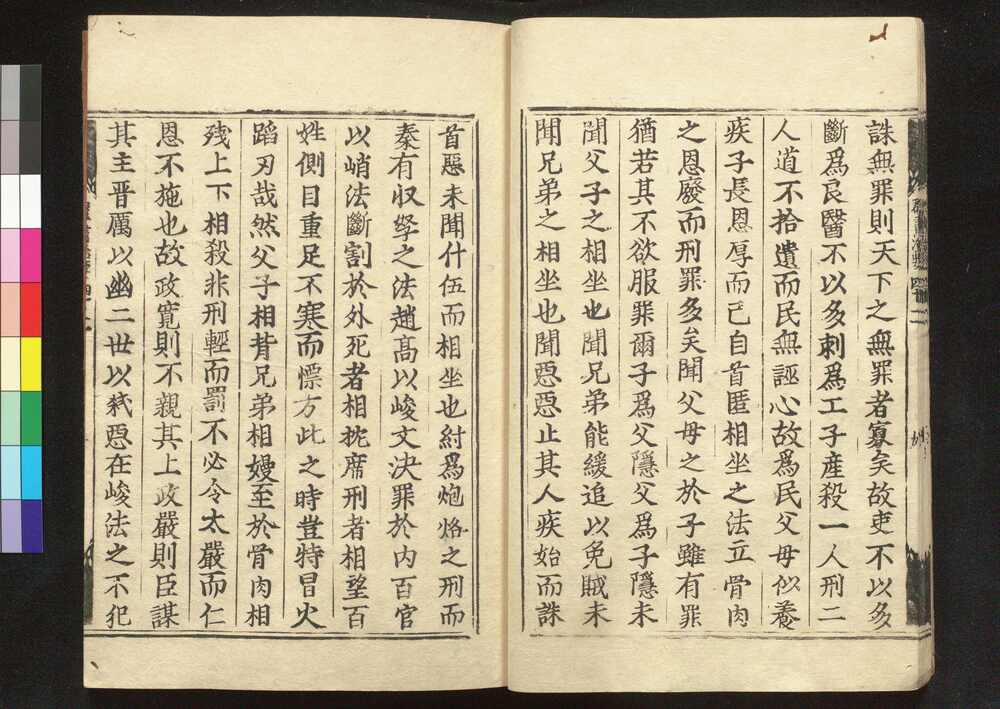 誅無罪則天下之無罪者寡矣故吏不以多
斷爲良醫不以多刺爲工子產殺一人刑二
人道不拾遺而民無誣心故爲民父母似養
疾子長恩厚而已自首匿相坐之法立骨肉
之恩廢而刑罪多矣聞父母之於子雖有罪
猶若其不欲服罪爾子爲父隱父爲子隱未
聞父子之相坐也聞兄弟能緩追以免賊未
聞兄弟之相坐也聞惡惡止其人疾始而誅
首惡未聞什伍而相坐也紂爲炮烙之刑而
秦有収孥之法趙高以峻文决罪於内百官
以峭法斷割於外死者相枕席刑者相望百
姓側目重足不寒而慄方此之時豈特冒火
蹈刃哉然父子相背兄弟相嫚至於骨肉相
残上下相殺非刑輕而罰不必令太嚴而仁
恩不施也故政寬則下親其上政嚴則臣謀
其主晋厲以幽二世以弑惡在峻法之不犯